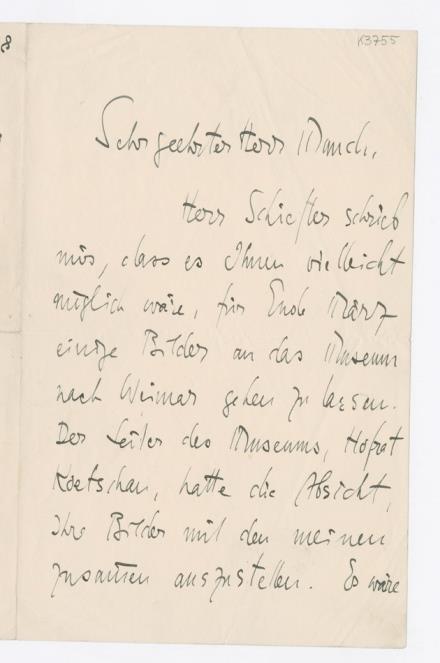 K3755
8
Sehr geehrter Herr Munch,
Herr Schiefler schrieb
mir, dass es Ihnen vielleicht
möglich wäre, für Ende März
einige Bilder an das Museum
nach Weimar gehen zu lassen.
Der Leiter des Museums, Hofrat
Koetschau, hatte die Absicht,
Ihre Bilder mit den meinen
zusammen auszustellen. Es wäre